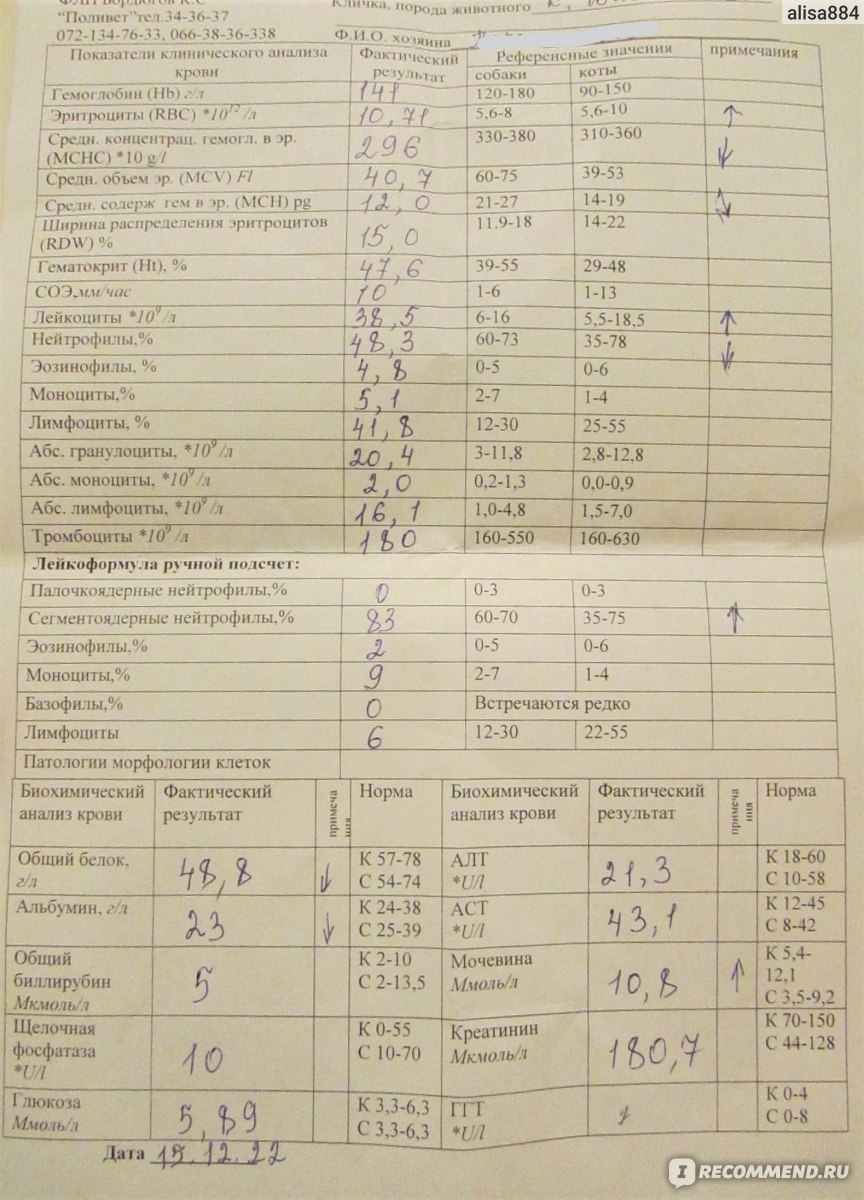 alisa884
"Поливет"тел.34-36-37
Кличка, порода животного
072-134-76-33, 066-38-36-338
Ф.И.О. хозяина
Показатели клинического анализа крови Фактический результат Референсные значения примечания
собаки коты
Гемоглобин (Hb) г/л 141 120-180 90-150
Эритроциты (RBC) *10¹²/л 10,71 5,6-8 5,6-10 ↑
Средн. концентрац. гемогл. в эр. (MCHC) *10 g/l 296 330-380 310-360 ↓
Средн. объем эр. (MCV) Fl 40,7 60-75 39-53
Средн. содерж гем в эр. (MCH) pg 12,0 21-27 14-19 ↓
Ширина распределения эритроцитов (RDW) % 15,0 11.9-18 14-22
Гематокрит (Ht), % 47,6 39-55 29-48
СОЭ,мм/час 10 1-6 1-13
Лейкоциты *10⁹/л 38,5 6-16 5,5-18,5 ↑
Нейтрофилы,% 48,3 60-73 35-78 ↓
Эозинофилы, % 4,8 0-5 0-6
Моноциты,% 5,1 2-7 1-4
Лимфоциты, % 41,8 12-30 25-55
Абс. гранулоциты, *10⁹/л 20,4 3-11,8 2,8-12,8
Абс. моноциты, *10⁹/л 2,0 0,2-1,3 0,0-0,9
Абс. лимфоциты, *10⁹/л 16,1 1,0-4,8 1,5-7,0
Тромбоциты *10⁹/л 180 160-550 160-630
Лейкоформула ручной подсчет:
Палочкоядерные нейтрофилы,% 0 0-3 0-3
Сегментоядерные нейтрофилы,% 83 60-70 35-75 ↑
Эозинофилы,% 2 0-5 0-6
Моноциты,% 9 2-7 1-4
Базофилы,% 0 Встречаются редко
Лимфоциты 6 12-30 22-55
Патологии морфологии клеток
Биохимический анализ крови Фактический результат примеча ния Норма Биохимический анализ крови Фактический результат примеча ния Норма
Общий белок, г/л 48,8 ↓ К 57-78 С 54-74 АЛТ *U/l 21,3 К 18-60 С 10-58
Альбумин, г/л 23 ↓ К 24-38 С 25-39 АСТ *U/l 43,1 К 12-45 С 8-42
Общий биллирубин Мкмоль/л 5 К 2-10 С 2-13,5 Мочевина Ммоль/л 10,8 ↑ К 5,4-12,1 С 3,5-9,2
Щелочная фосфатаза *U/l 10 К 0-55 С 10-70 Креатинин Мкмоль/л 180,7 К 70-150 С 44-128
Глюкоза Ммоль/л 5,89 К 3,3-6,3 С 3,3-6,3 ГГТ *U/l К 0-4 С 0-8
Дата 15.12.22
IRECOMMEND.RU